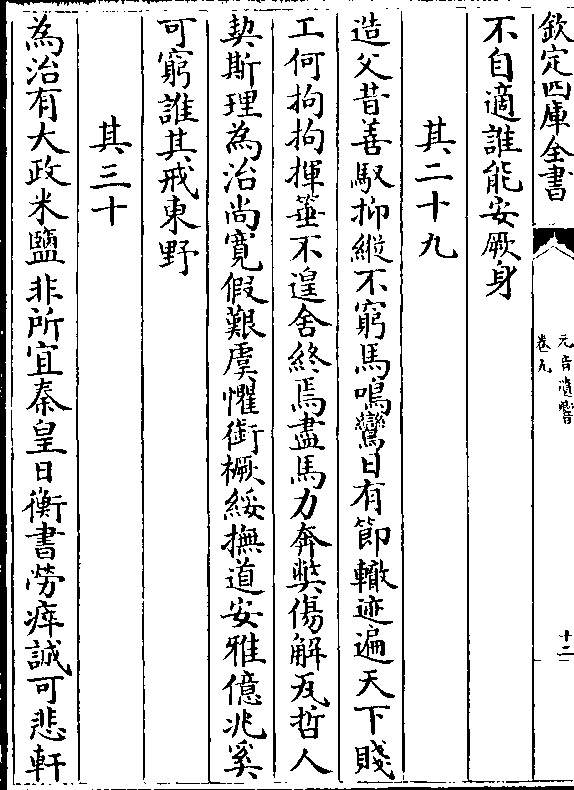 欽定四庫全書
元音遺響
卷九
十二
不自適誰能安厥身
其二十九
造父昔善馭抑縱不窮馬鳴鸞日有節轍迹遍天下賤
工何拘拘揮箠不遑舍終焉盡馬力奔獘傷解瓦哲人
契斯理為治尚寛假艱虞懼銜橛綏撫道安雅億兆奚
可窮誰其戒東野
其三十
為治有大政米鹽非所宜秦皇日衡書勞瘁誠可悲軒